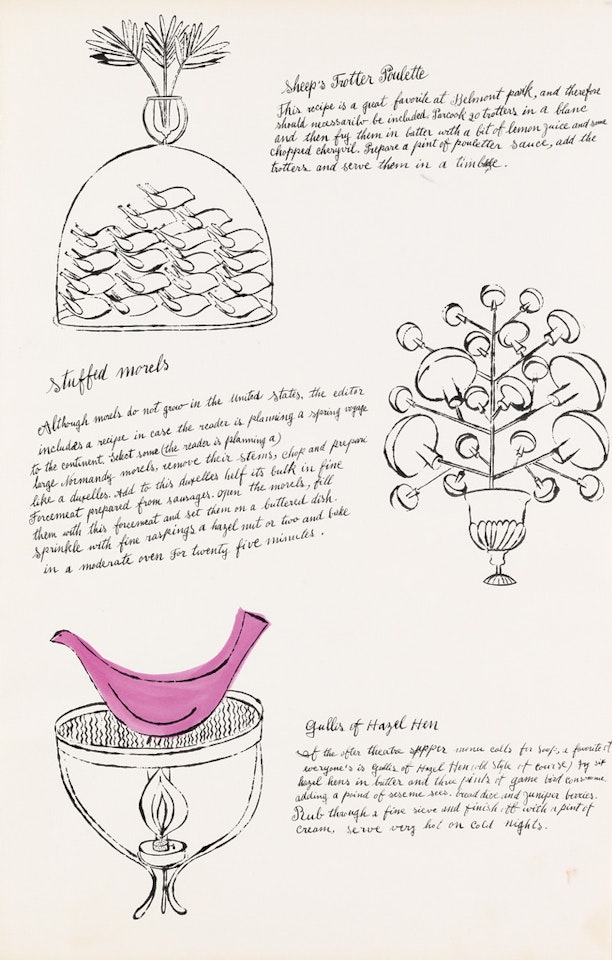 Sheep's Trotter Poulette
This recipe is a great favorite at Belmont park, and therefore
should necessarily be included. Parcook 20 trotters in a blanc
and then fry them in batter with a bit of lemon juice and some
chopped chervyil. Prepare a pint of pouletter sauce, add the
trotters and serve them in a timbale.
Stuffed morels
Although morels do not grow in the United States, the editor
includes a recipe in case the reader is planning a spring voyage
to the continent. Select some (the reader is planning a)
large Normandy morels, remove their stems, chop and prepare
like a duxelles. Add to this duxelles helf its bulk in fine
Forcemeat prepared from sausages. open the morels, fill
them with this forcemeat and set them on a buttered dish.
Sprinkle with fine raspings a hazel nut or two and bake
in a moderate oven For twenty five minutes.
Gullis of Hazel Hen
If the after theatre supper menu calls for soup, a favorite of
everyone's is Gullis of Hazel Hen (old style of course) Fry six
hazel hens in butter and three pints of game bird consomme,
adding a poind of seseme sees. bread dice and juniper berries.
Rub through a fine sieve and finish it with a pint of
cream, serve very hot on cold nights.